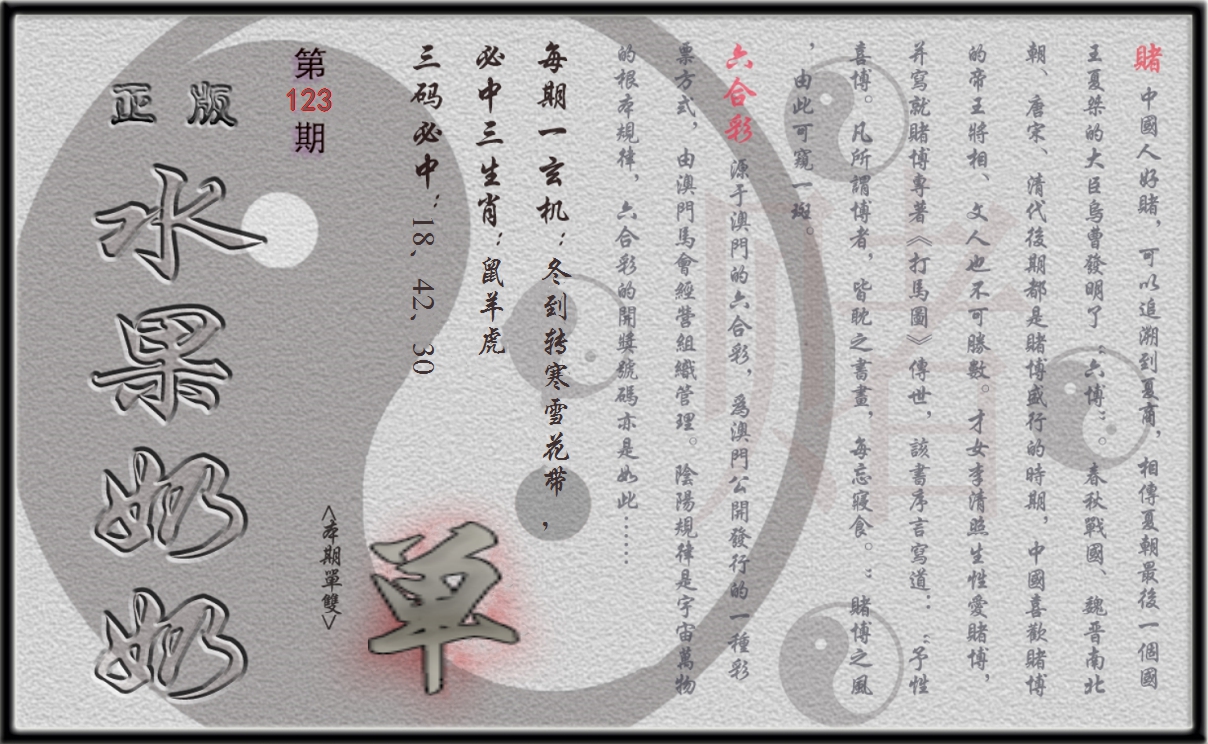 賭 中國人好賭，可以追溯到夏商，相傳夏朝最後一個國
王夏桀的大臣烏曹發明了“六博”。春秋戰國、魏晉南北
朝、唐宋、清代後期都是賭博盛行的時期，中國喜歡賭博
的帝王將相、文人也不可勝數。才女李清照生性愛賭博，
并寫就賭博專著《打馬圖》傳世，該書序言寫道：“予性
喜博。凡所謂博者，皆耽之書畫，每忘寢食。：賭博之風
，由此可窺一斑。
六合彩 源于澳門的六合彩，爲澳門公開發行的一種彩
票方式，由澳門馬會經營組織管理。陰陽規律是宇宙萬物
的根本規律，六合彩的開獎號碼亦是如此……
每期一玄机：冬到转寒雪花带，
必中三生肖：鼠羊虎
三码必中：18、42、30
單
<本期單雙>
第123期
正版
水果奶奶